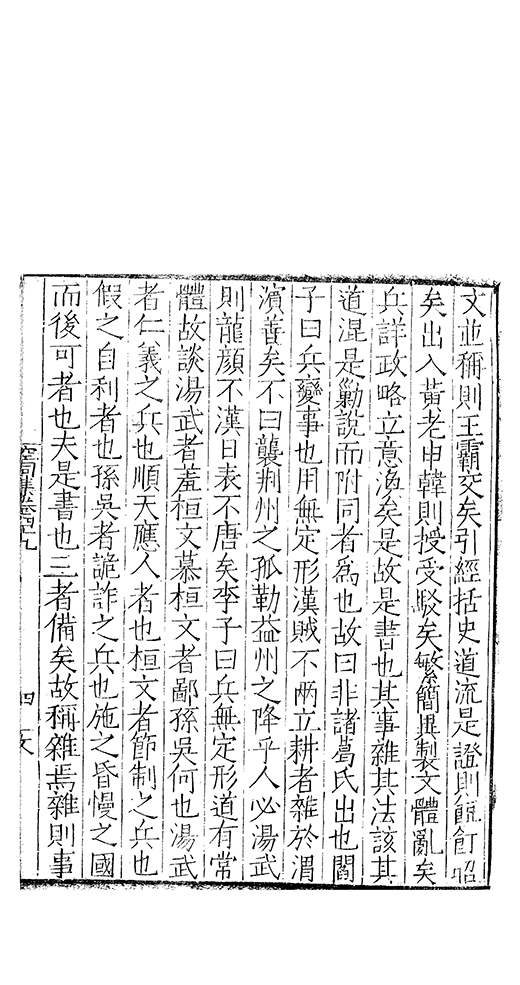 文並稱則王霸交矣引經括史道流是證則飣餖昭
矣出入黃老申韓則授受駁矣繁簡異製文體亂矣
兵詳政略立意漁矣是故是書也其事雜其法該其
道混是勦說而附同者為也故曰非諸葛氏出也閻
子曰兵變事也用無定形漢賊不兩立耕者雜於渭
濱善矣不曰襲荆州之孤勒益州之降乎人必湯武
則龍顏不漢日表不唐矣李子曰兵無定形道有常
體故談湯武者羞桓文慕桓文者鄙孫吳何也湯武
者仁義之兵也順天應人者也桓文者節制之兵也
假之自利者也孫吳者詭詐之兵也施之昏慢之國
而後可者也夫是書也三者備矣故稱雜焉雜則事
空同集卷四十九
四